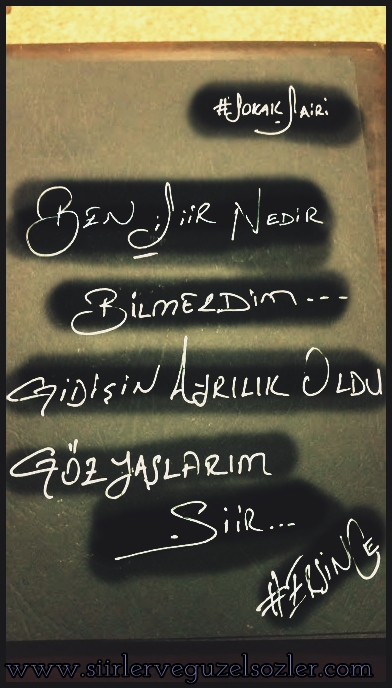 #SOKAKŞAİRİ
BEN ŞİİR NEDİR
BİLMEZDİM...
GİDİŞİN AYRILIK OLDU
GÖZYAŞLARIM
ŞİİR...
#ERSİNÇE
www.siirlerveguzelsozler.com